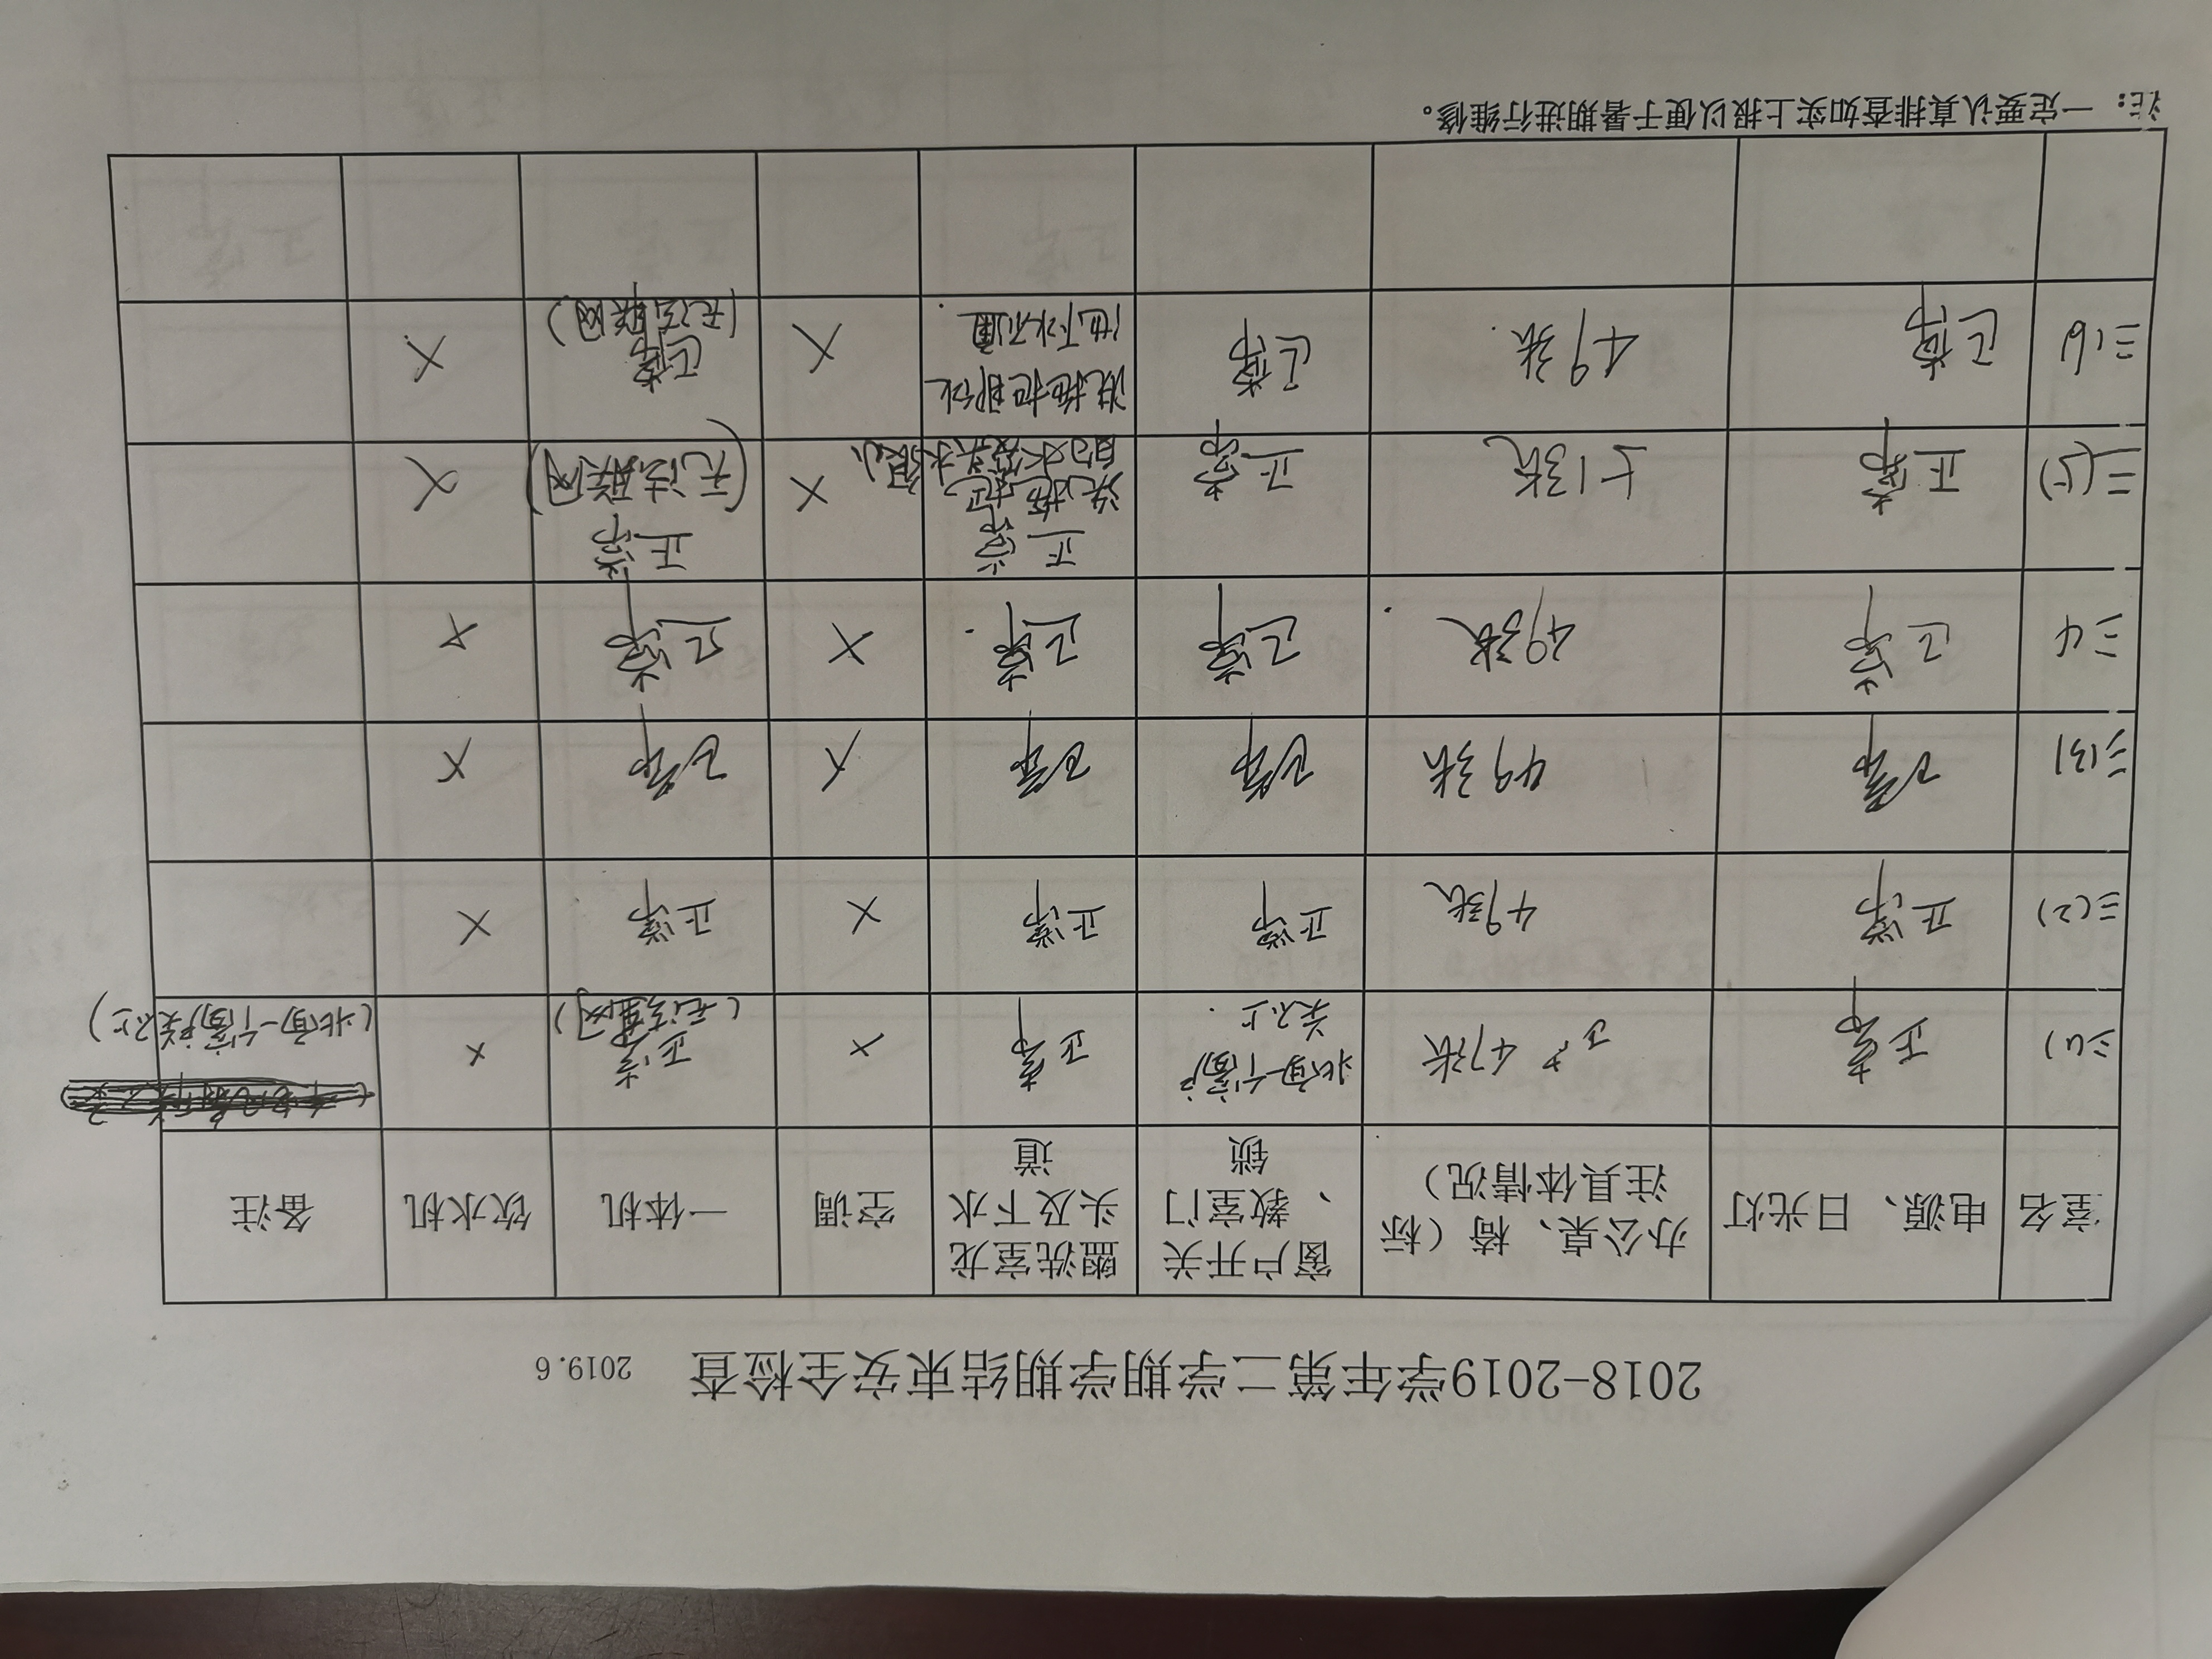 2018-2019学年第二学期学期结束安全检查 2019.6
室名 电源、日光灯 办公桌、椅（标注具体情况） 窗户开关、教室门锁 盥洗室龙头及下水道 空调 一体机 饮水机 备注
三(1) 正常 47张 北面一个窗户关不上. 正常 × 正常 × (北面一个窗户关不上)
三(2) 正常 49张 正常 正常 × 正常 ×
三(3) 正常 49张 正常 正常 × 正常 ×
三4 正常 49张. 正常 正常. × 正常 ×
三(5) 正常 51张 正常 正常 洗拖把 水很小 × 正常 (无法联网) ×
三(6) 正常 49张. 正常 洗拖把那个池下水不通. × 正常 (无法联网) ×
注：一定要认真排查如实上报以便于暑期进行维修。